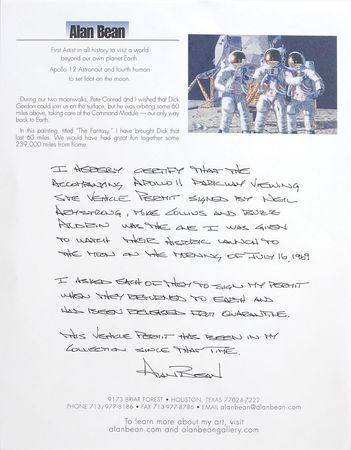 Alan Bean
First Artist in all history to visit a world
beyond our own planet Earth.
Apollo 12 Astronaut and fourth human
to set foot on the moon.
During our two moonwalks, Pete Conrad and I wished that Dick
Gordon could join us on the surface, but he was orbiting some 60
miles above, taking care of the Command Module — our only way
back to Earth.
In this painting, titled "The Fantasy," I have brought Dick that
last 60 miles. We would have had great fun together some
239,000 miles from home.
I HEREBY CERTIFY THAT THE
ACCOMPANYING, APOLLO 11 PARKWAY VIEWING
SITE VEHICLE PERMIT SIGNED BY NEIL
ARMSTRONG, MIKE COLLINS AND BUZZ
ALDRIN WAS THE ONE I WAS GIVEN
TO WATCH THEIR HISTORIC LAUNCH TO
THE MOON ON THE MORNING OF JULY 16, 1969
I ASKED EACH OF THEM TO SIGN MY PERMIT
WHEN THEY RETURNED TO EARTH AND
HAD BEEN RELEASED FROM QUARANTINE.
THIS VEHICLE PERMIT HAS BEEN IN MY
COLLECTION SINCE THAT TIME.
ALAN BEAN
9173 BRIAR FOREST • HOUSTON, TEXAS 77024-7222
PHONE 713/977-8186 • FAX 713-977-8786 • EMAIL alanbean@alanbean.com
To learn more about my art, visit
alanbean.com and alanbeangallery.com